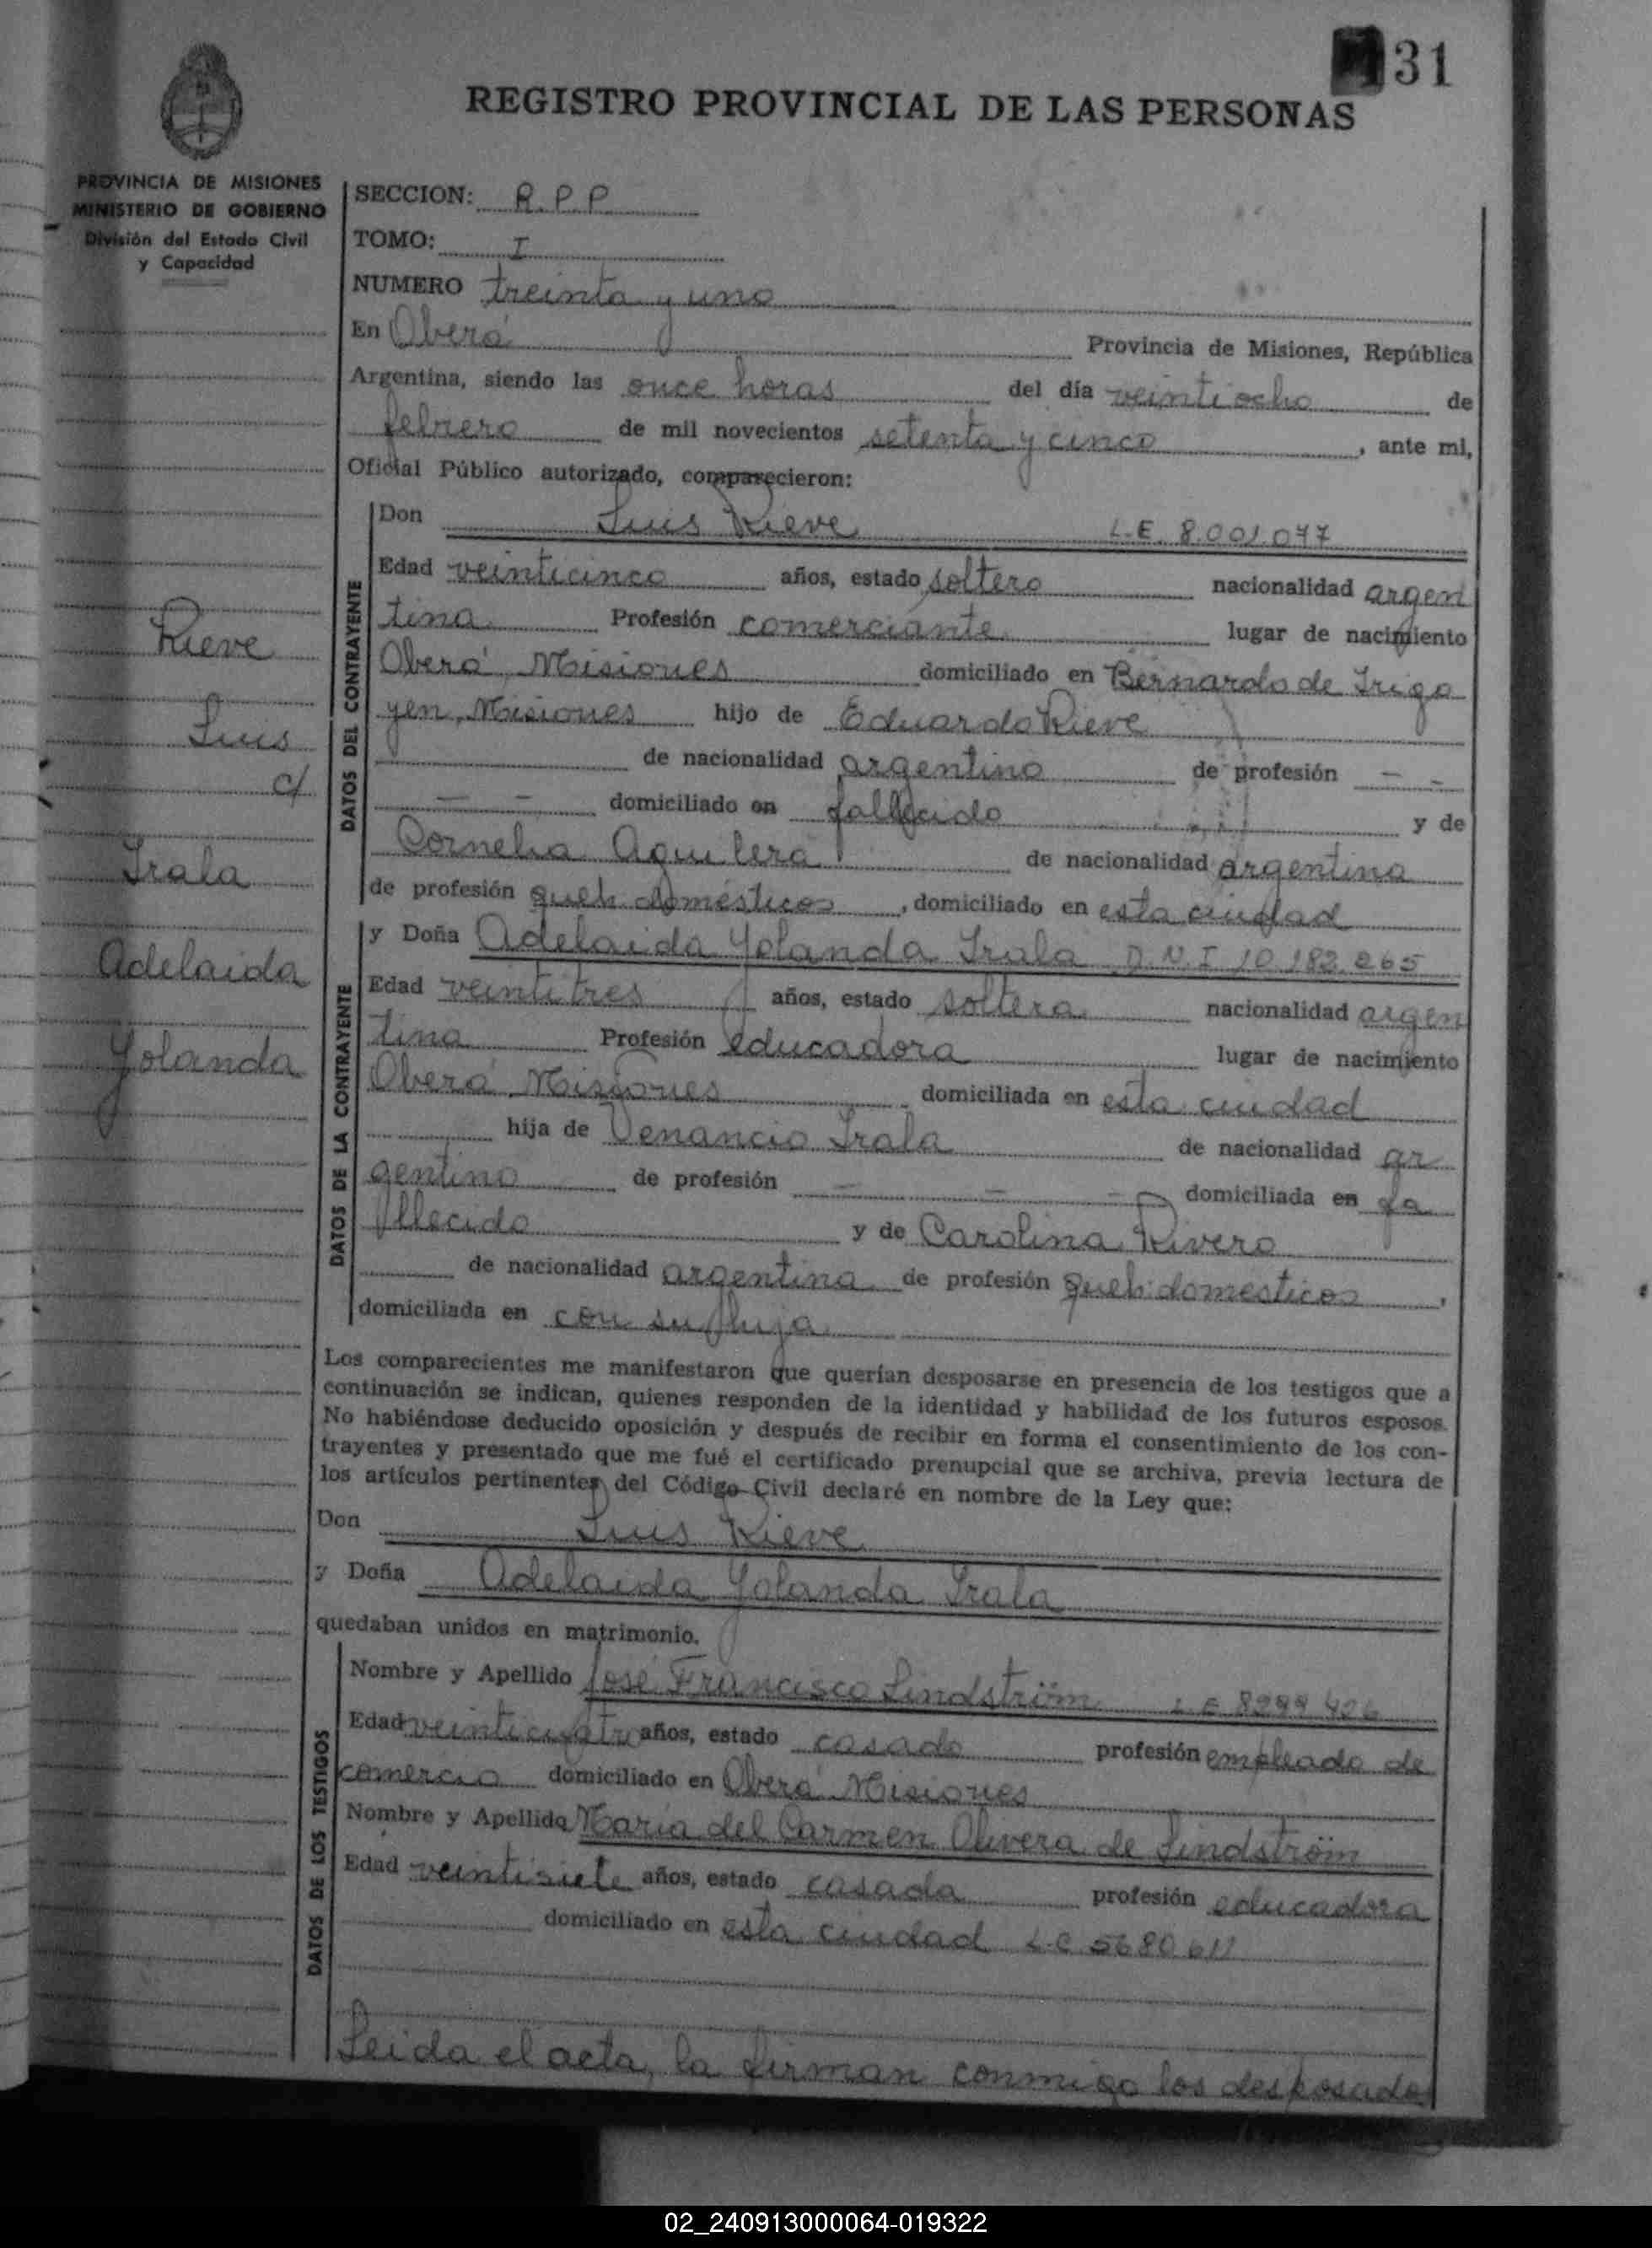 31
REGISTRO PROVINCIAL DE LAS PERSONAS
PROVINCIA DE MISIONES
MINISTERIO DE GOBIERNO
División del Estado Civil
y Capacidad
SECCION: R.P.P
TOMO: I
NUMERO treinta y uno
En Oberá Provincia de Misiones, República
Argentina, siendo las once horas del día veintiocho de
febrero de mil novecientos setenta y cinco, ante mi,
Oficial Público autorizado, comparecieron:
Rieve
Luis
c/
Irala
Adelaida
Yolanda
DATOS DEL CONTRAYENTE
Don Luis Rieve L.E. 8.001.077
Edad veinticinco años, estado soltero nacionalidad argen
tina Profesión comerciante lugar de nacimiento
Oberá, Misiones domiciliado en Bernardo de Irigo
yen, Misiones hijo de Eduardo Rieve
de nacionalidad argentino de profesión - -
- - domiciliado en fallecido y de
Cornelia Aguilera de nacionalidad argentina
de profesión queh domésticos, domiciliado en esta ciudad
DATOS DE LA CONTRAYENTE
y Doña Adelaida Yolanda Irala D.N.I 10.182.265
Edad veintitres años, estado soltera nacionalidad argen
tina Profesión educadora lugar de nacimiento
Oberá Misiones domiciliada en esta ciudad
hija de Venancio Irala de nacionalidad ar
gentino de profesión - - - domiciliada en fa
llecido y de Carolina Rivero
de nacionalidad argentina de profesión queh domesticos,
domiciliada en con su hija
Los comparecientes me manifestaron que querían desposarse en presencia de los testigos que a
continuación se indican, quienes responden de la identidad y habilidad de los futuros esposos.
No habiéndose deducido oposición y después de recibir en forma el consentimiento de los con-
trayentes y presentado que me fué el certificado prenupcial que se archiva, previa lectura de
los artículos pertinentes del Código Civil declaré en nombre de la Ley que:
Don Luis Rieve
y Doña Adelaida Yolanda Irala
quedaban unidos en matrimonio.
DATOS DE LOS TESTIGOS
Nombre y Apellido José Francisco Lindström L E 8299 426
Edad veinticuatro años, estado casado profesión empleado de
comercio domiciliado en Oberá Misiones
Nombre y Apellido María del Carmen Olivera de Lindström
Edad veintisiete años, estado casada profesión educadora
domiciliado en esta ciudad L.C 5680611
Leida el acta, la firman conmigo los desposados
02_240913000064-019322